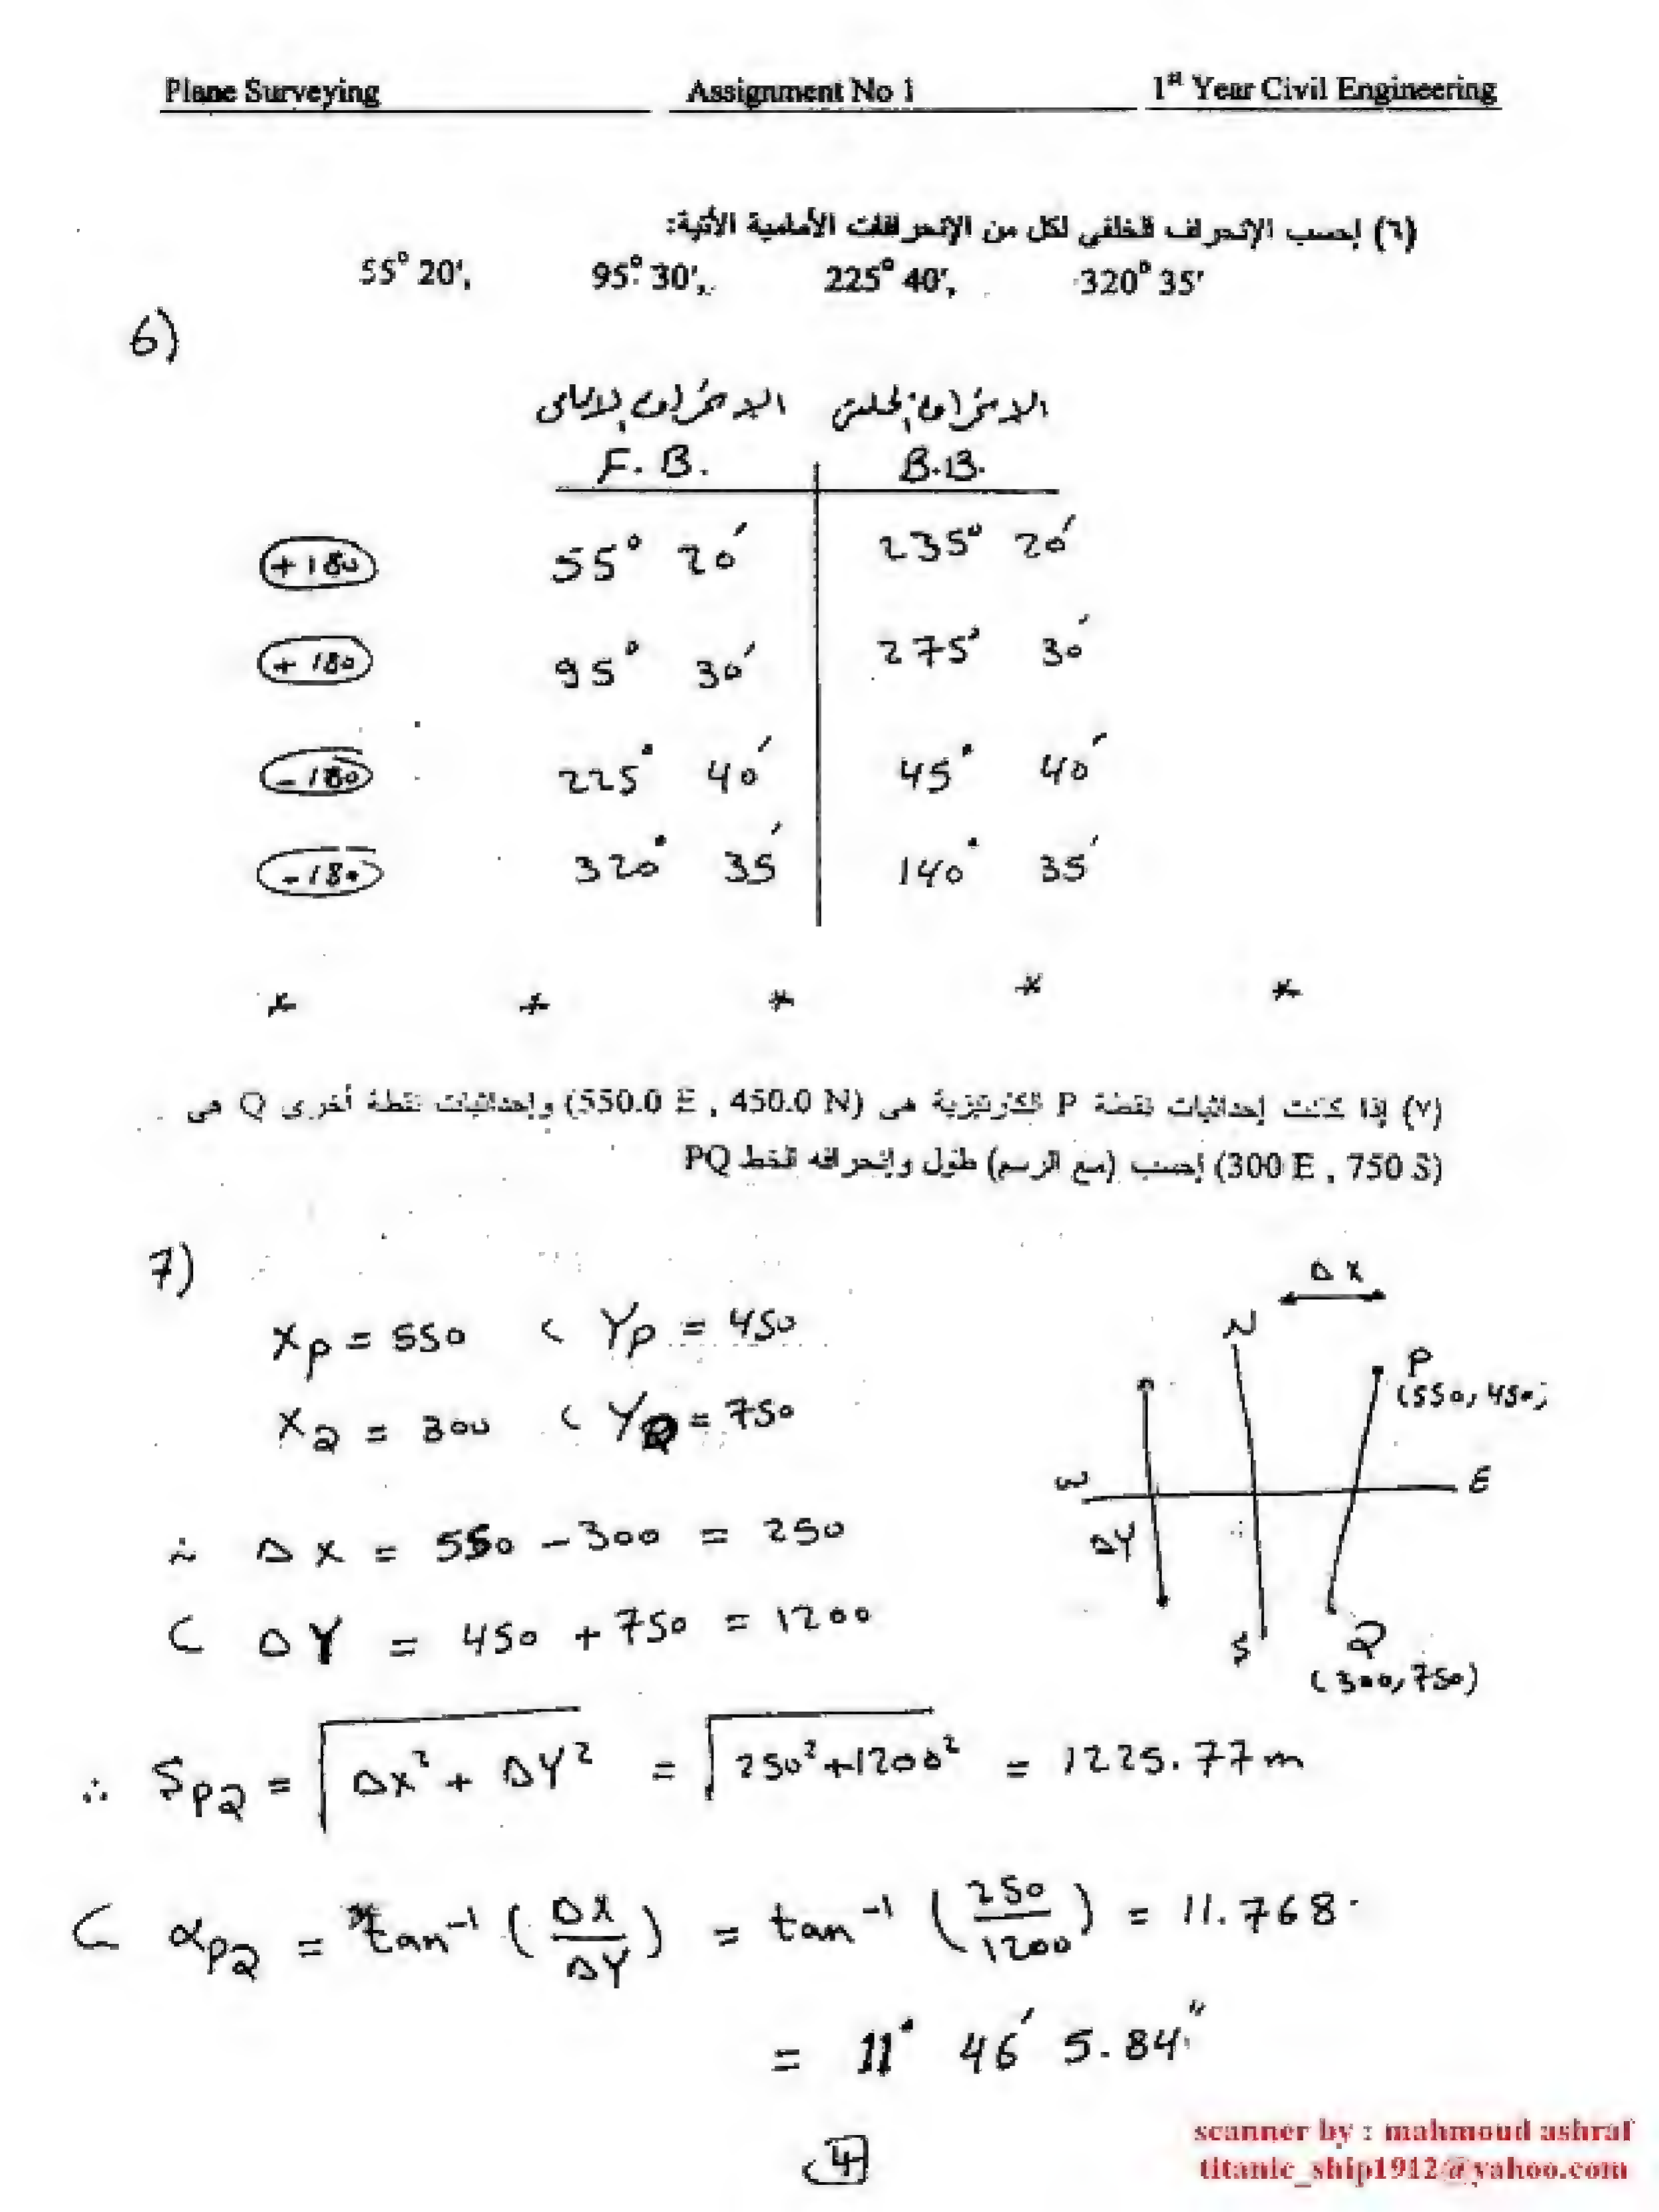 Plane Surveying Assignment No 1 1st Year Civil Engineering
(٦) إحسب الإنحراف الخلفي لكل من الإنحرافات الأمامية الأتية:
55° 20', 95° 30', 225° 40', 320° 35'
6)
الانحراف الامامى الانحراف الخلفى
F.B. B.B.
+180 55° 20' 235° 20'
+180 95° 30' 275° 30'
-180 225° 40' 45° 40'
-180 320° 35' 140° 35'
* * * * *
(٧) إذا كانت إحداثيات نقطة P الكارتيزية هى (550.0 E , 450.0 N) وإحداثيات نقطة أخرى Q هى
(300 E , 750 S) إحسب (مع الرسم) طول وإنحرافه الخط PQ
7)
Xp = 550 ، Yp = 450
XQ = 300 ، YQ = 750
∴ ΔX = 550 - 300 = 250
، ΔY = 450 + 750 = 1200
ΔX
N
P
(550, 450)
W E
ΔY
S
Q
(300, 750)
∴ SPQ = √ΔX² + ΔY² = √250² + 1200² = 1225.77 m
، αPQ = tan⁻¹ (ΔX/ΔY) = tan⁻¹ (250/1200) = 11.768°
= 11° 46' 5.84"
4
scanner by : mahmoud ashraf
titanic_ship1912@yahoo.com